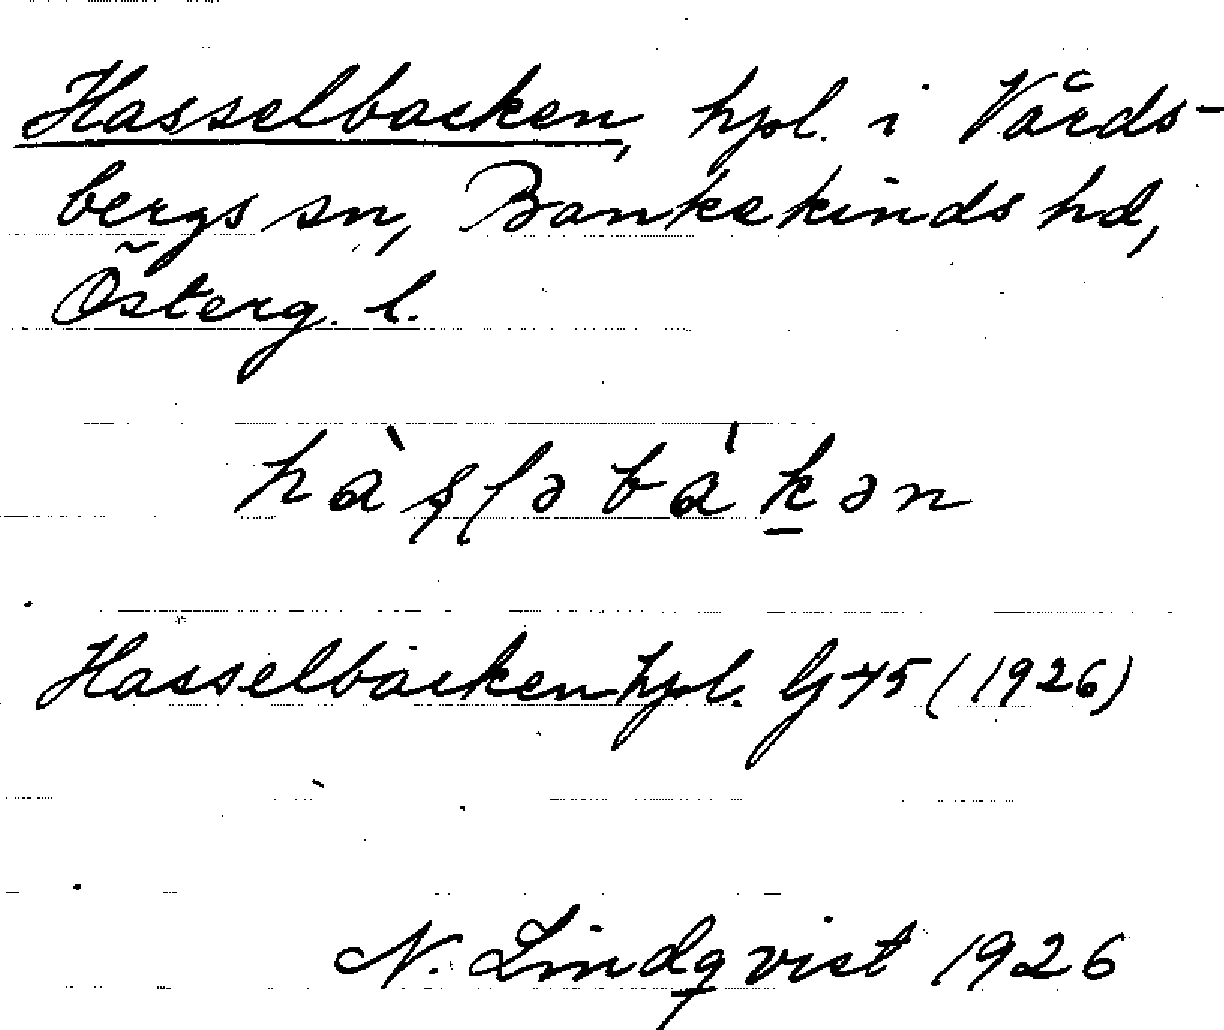 Hasselbacken, hpl. i Vårds-
bergs sn, Bankekinds hd,
Österg. l.
hàʂləbákən
Hasselbacken hpl. G 45 (1926)
N. Lindqvist 1926